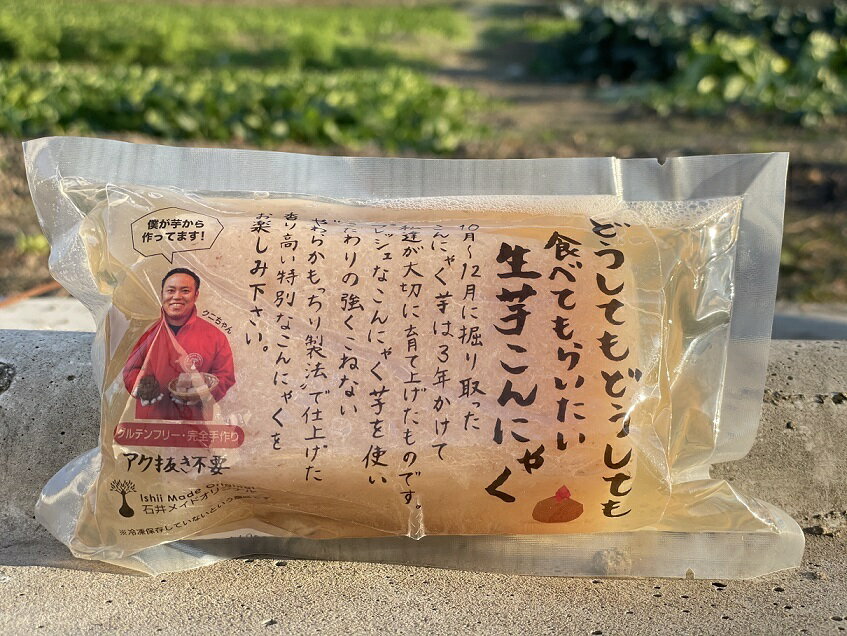 どうしてもどうしても
食べてもらいたい
生芋こんにゃく
10月〜12月に掘り取った
こんにゃく芋は3年かけて
大切に育て上げたものです。
フレッシュなこんにゃく芋を使い
こだわりの強くこねない
やわらかもっちり製法"で仕上げた
香り高い特別なこんにゃくを
お楽しみ下さい。
僕が芋から
作ってます!
クニちゃん
グルテンフリー・完全手作り
アク抜き不要
Ishii Made Original
石井メイドオリジナル
※冷凍保存していないという